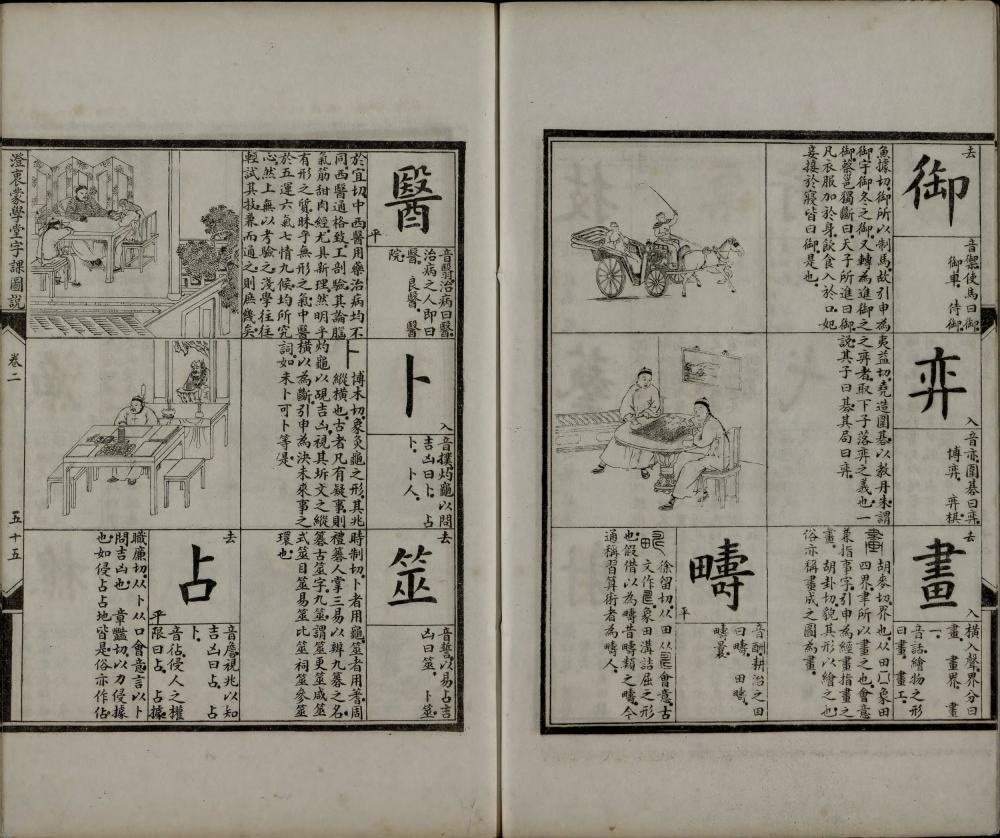 御
去
音禦使馬曰御
御車 侍御
魚據切御所以制馬故引申為
御宇御冬之御又轉為進御之
御蔡邕獨斷曰天子所進曰御
凡衣服加於身飲食入於口妃
妾接於寢皆曰御是也
弈
入
音亦圍碁曰弈
博弈 弈棋
夷益切堯造圍碁以教丹朱謂
之弈者取下子落弈之義也一
說其子曰碁其局曰弈
畫
去
入
橫入聲界分曰
畫 畫界 畫
一
音話繪物之形
曰畫 畫工
胡麥切界也从田
象田
四界聿所以畫之也會意
兼指事字引申為經畫指畫之
畫 胡卦切貌其形以繪之也
俗亦稱畫成之圖為畫
疇
平
音酬耕治之田
曰疇 田疇
疇曩
徐留切从田从
會意古
文作
象田溝詰屈之形
也假借以為疇昔疇類之疇今
通稱習算術者為疇人
醫
平
音翳治病曰醫
治病之人即曰
醫 良醫 醫
院
於宜切中西醫用藥治病均不
同西醫通格致工剖驗其論腦
氣筋甜肉經尤具新理然明乎
有形之質昧乎無形之氣中醫
於五運六氣七情九候均所究
心然上無以考驗之淺學往往
輕試其技兼而通之則庶幾矣
卜
入
音撲灼龜以問
吉凶曰卜 占
卜 卜人
博木切象灸龜之形其兆
縱橫也古者凡有疑事則
灼龜以覘吉凶視其坼文之縱
橫以為斷引申為決未來事之
詞如未卜可卜等是
筮
去
音誓以易占吉
凶曰筮 卜筮
時制切卜者用龜筮者用蓍周
禮簭人掌三易以辨九簭之名
簭古筮字九筮謂筮更筮咸筮
式筮目筮易筮比筮祠筮參筮
環也
占
去
平
音詹視兆以知
吉凶曰占 占
卜
音佔侵人之權
限曰占 占據
職廉切从卜从口會意言以卜
問吉凶也 章豔切以力侵據
也如侵占占地皆是俗亦作佔
澄衷蒙學堂字課圖說
卷二
五十五